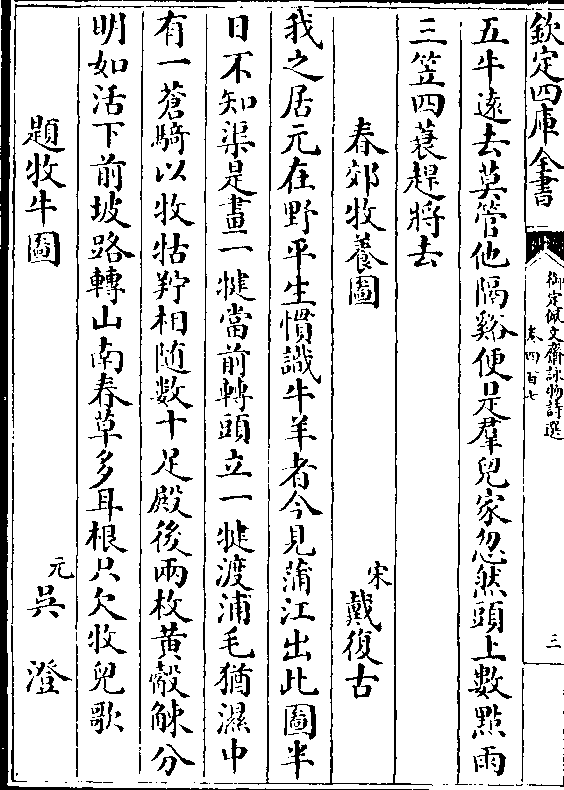 欽定四庫全書
御定佩文齋詠物詩選
卷四百七
三
五牛遠去莫管他隔谿便是羣兒家忽然頭上數點雨
三笠四蓑趕將去
春郊牧養圖
宋戴復古
我之居元在野平生慣識牛羊者今見蒲江出此圖半
日不知渠是畫一犍當前轉頭立一犍渡浦毛猶濕中
有一蒼騎以牧牯羜相随數十足殿後兩枚黃觳觫分
明如活下前坡路轉山南春草多耳根只欠牧兒歌
題牧牛圖
元吳澄